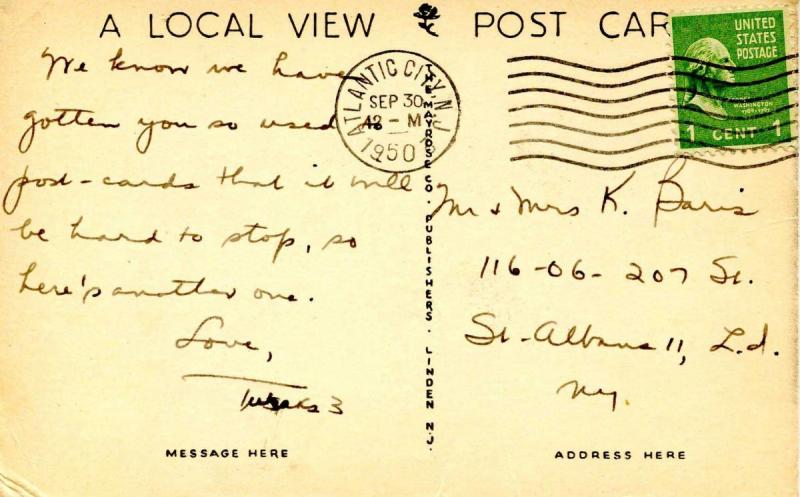 A LOCAL VIEW POST CAR
We know we have
gotten you so used to
post-cards that it will
be hard to stop, so
here's another one.
Love,
MESSAGE HERE
ATLANTIC CITY N.J.
SEP 30
12 - M
1950
THE MAYROSE CO. PUBLISHERS. LINDEN N.J.
UNITED
STATES
POSTAGE
WASHINGTON
1 CENT 1
Mr & Mrs K. Baris
116-06-207 St.
St. Albans 11, L.I.
NY.
ADDRESS HERE